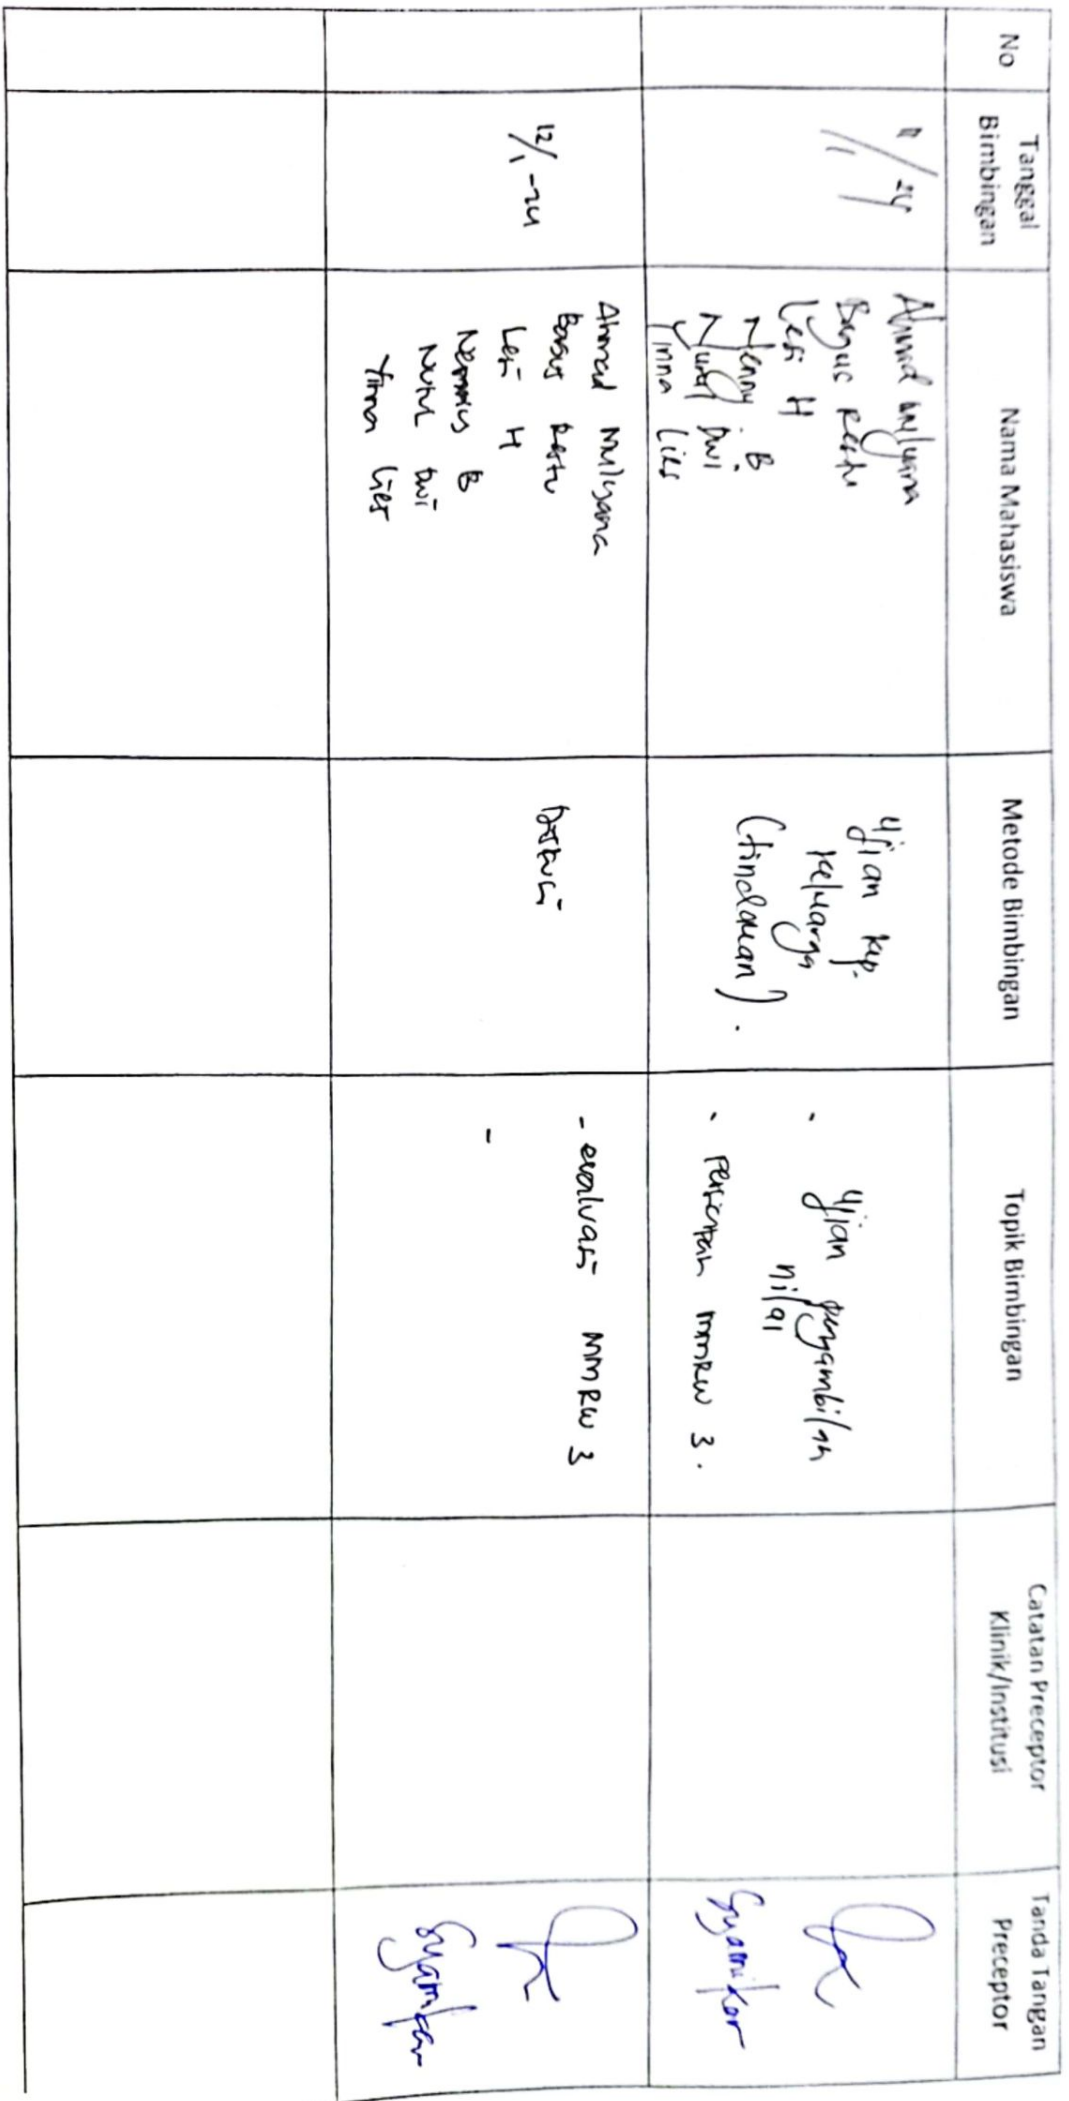 No
Tanggal
Bimbingan
Nama Mahasiswa
Metode Bimbingan
Topik Bimbingan
Catatan Preceptor
Klinik/Institusi
Tanda Tangan
Preceptor
11/1 -24
Ahmad Mulyana
Bagus Restu
Lesi H
Nenny B.
Nurul Dwi
Yinna Lies
Ujian kep.
keluarga
(tindakan).
- Ujian pengambilan
nilai
- Persiapan MMRW 3.
Syamikar
12/1 -24
Ahmad Mulyana
Bagus Restu
Lesi H
B
Nurul Dwi
Yinna Lies
Diskusi
- evaluasi MMRW 3
-
Syamikar